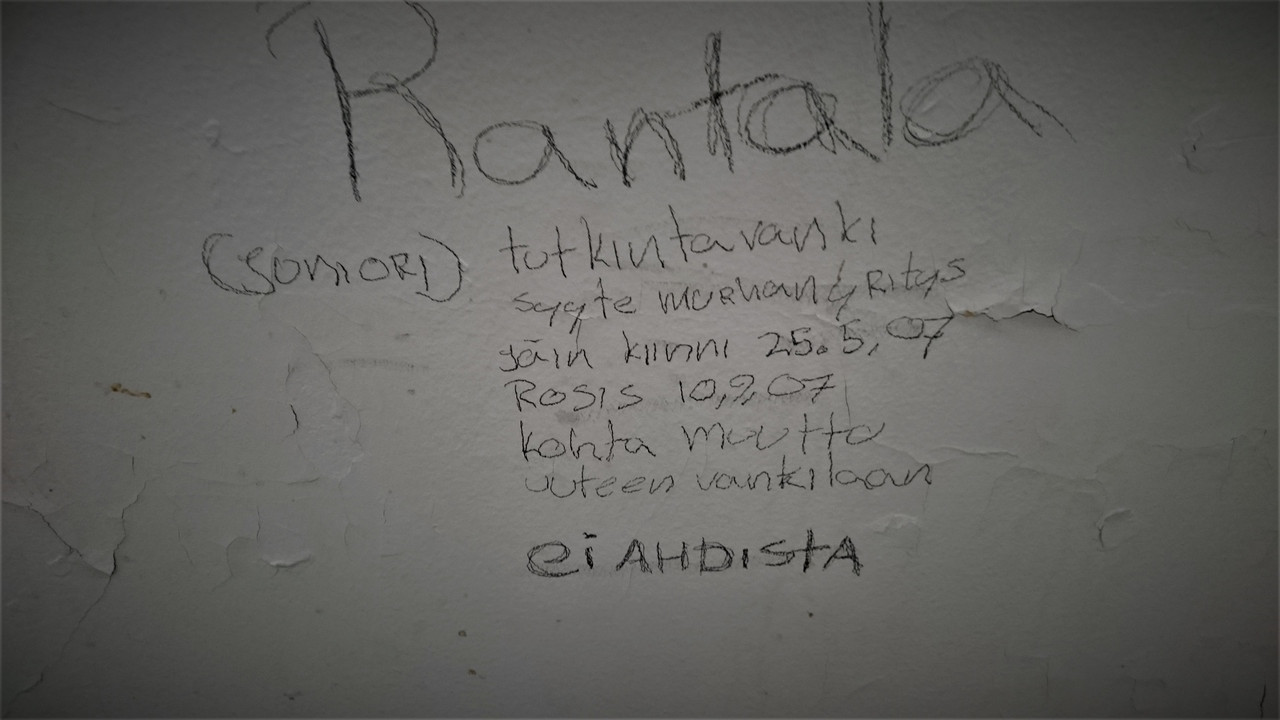 Rantala
(JUNIORI) tutkintavanki
syyte murhan yritys
Jäin kiinni 25.5.07
Rosis 10,9,07
kohta muutto
uuteen vankilaan
ei AHDISTA